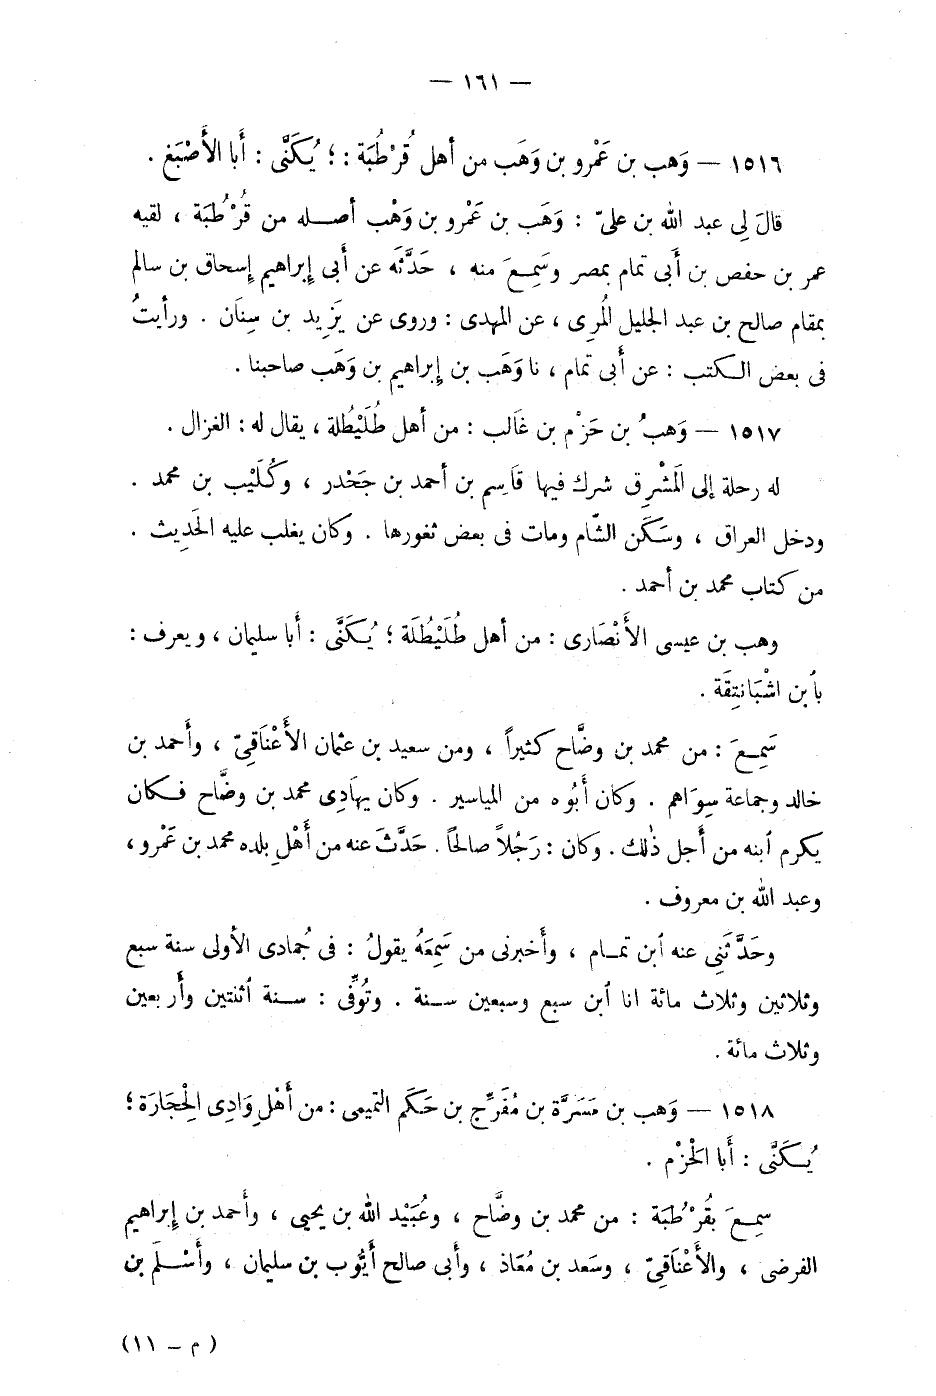 — ١٦١ —
١٥١٦ — وَهب بن عَمْرو بن وَهَب من أهل قُرْطُبَة : ؛ يُكَنَّى : أَبا الأَصْبَغ .
قالَ لِي عبد الله بن علىّ : وَهَب بن عَمْرو بن وَهْب أصله من قُرْطُبَة ، لقيه
عمر بن حفص بن أَبى تمام بمصر وسَمِعَ منه ، حَدَّثَه عن أَبى إِبراهيم إِسحاق بن سالم
بمقام صالح بن عبد الجليل المُرى ، عن المهدى : وروى عن يَزِيد بن سِنَان . ورأيتُ
فى بعض الكتب : عن أَبى تمام ، نا وَهَب بن إِبراهيم بن وَهَب صاحبنا .
١٥١٧ — وَهبُ بن حَزْم بن غَالب : من أهل طُلَيْطُلة ، يقال له : الغزال .
له رحلة إلى المَشْرِق شرك فيها قَاسِم بن أحمد بن جَحْدر ، وكُلَيْب بن محمد .
ودخل العراق ، وسَكَن الشَّام ومات فى بعض ثغورها . وكان يغلب عليه الحَدِيث .
من كتاب محمد بن أحمد .
وهب بن عيسى الأَنْصَارى : من أهل طُلَيْطُلَة ؛ يُكَنَّى : أَبا سليمان ، ويعرف :
بٱبن اشْبَانتِقَة .
سَمِعَ : من محمد بن وضَّاح كثيراً ، ومن سعيد بن عثمان الأَعْنَاقِىّ ، وأَحمد بن
خالد وجماعة سِوَاهم . وكان أَبُوه من المياسير . وكان يهَادِى محمد بن وضَّاح فكان
يكرم ٱبنه من أَجل ذٰلك . وكان : رَجُلاً صالحًا . حَدَّثَ عنه من أَهْلِ بلده محمد بن عَمْرو ،
وعبد الله بن معروف .
وحَدَّثَنِى عنه ٱبن تمام ، وأَخبرنى من سَمِعَهُ يقولُ : فى جُمادى الأولى سنة سبع
وثلاثين وثلاث مائة انا ٱبن سبع وسبعين سنة . وتُوفِّى : سنة ٱثنتين وأَربعين
وثلاث مائة .
١٥١٨ — وَهب بن مَسَرَّة بن مُفَرِّج بن حَكَم التميمى : من أَهْلِ وَادِى الْحِجَارَة ؛
يُكَنَّى : أَبا الحَزْم .
سمِعَ بقُرْطُبَة : من محمد بن وضَّاح ، وعُبَيْد الله بن يحيى ، وأَحمد بن إِبراهيم
الفرضى ، والأَعْنَاقِىّ ، وسَعد بن مُعَاذ ، وأَبى صالح أَيُّوب بن سليمان ، وأَسْلَم بن
( م — ١١)